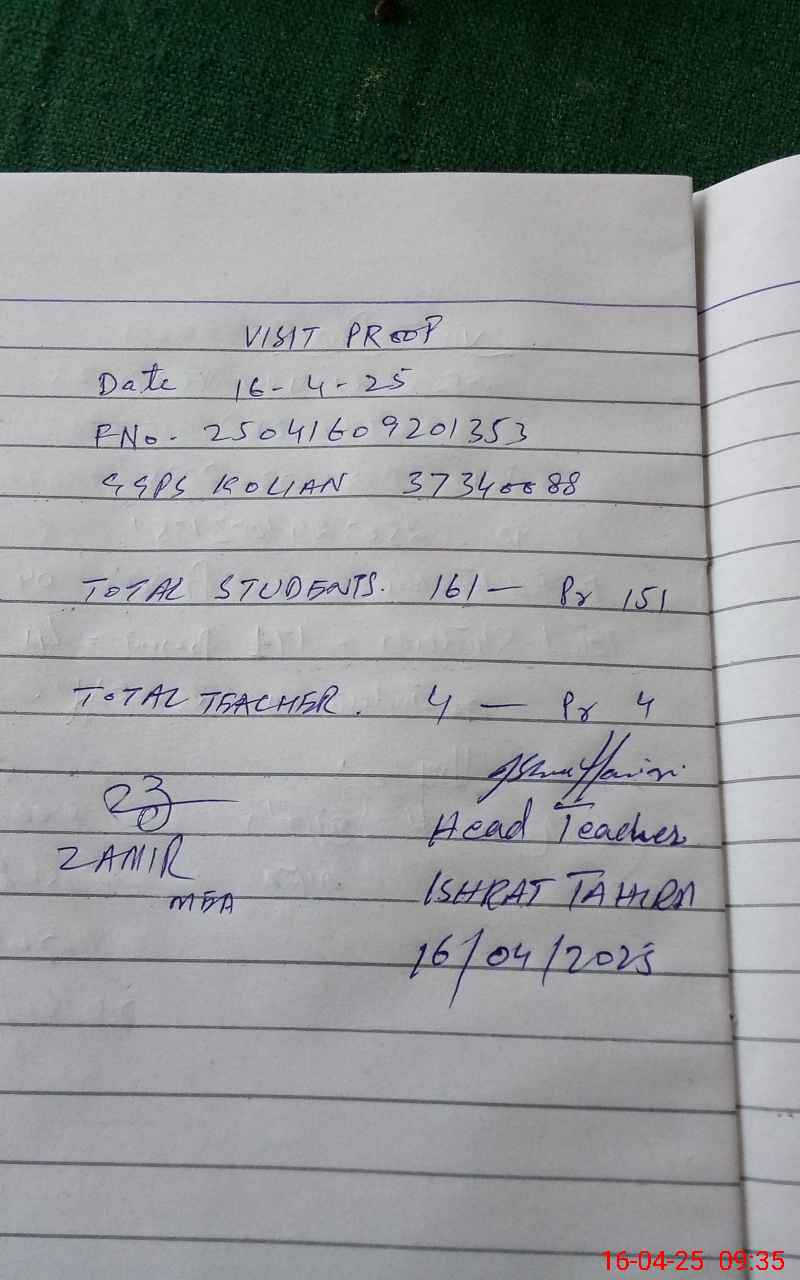 VISIT PROOF
Date 16-4-25
FNo. 25041609201353
GGPS KOLIAN 37340088
TOTAL STUDENTS. 161 — Pr 151
TOTAL TEACHER. 4 — Pr 4
Head Teacher
ZAMIR
MEA
ISHRAT TAHIRA
16/04/2025
16-04-25 09:35